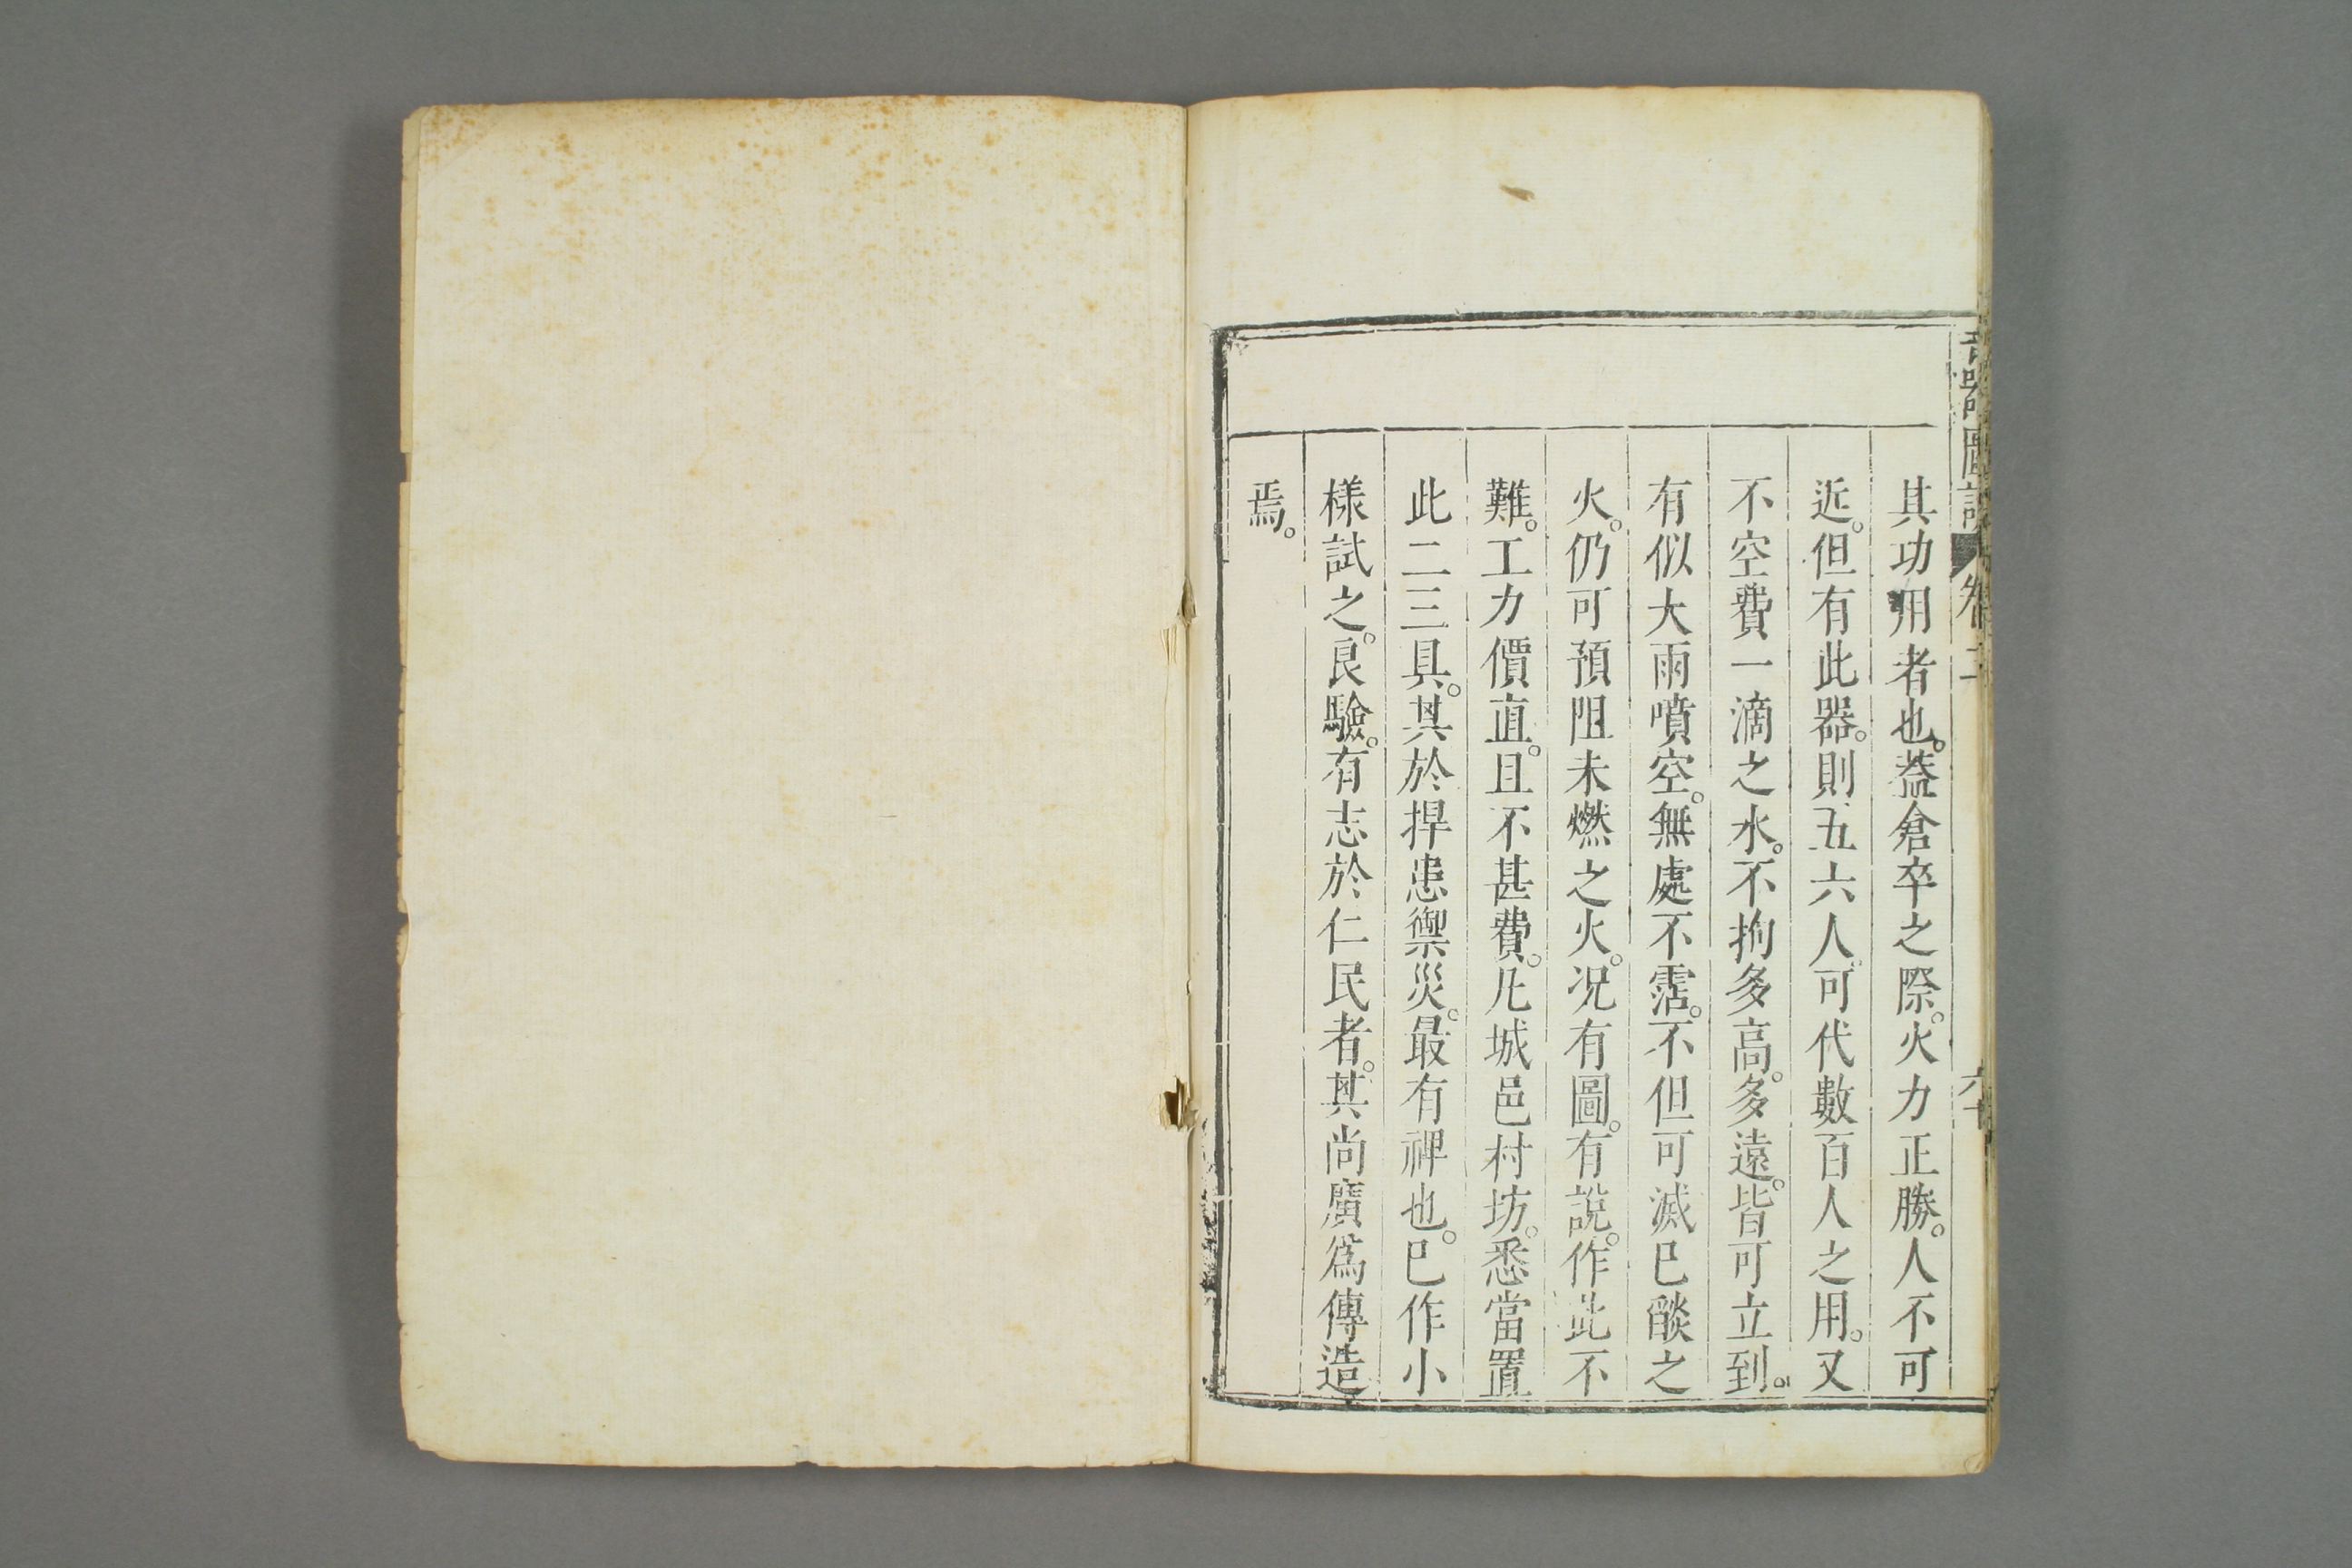 其功用者也。葢倉卒之際。火力正勝。人不可
近。但有此器。則五六人。可代數百人之用。又
不空費一滴之水。不拘多高。多遠。皆可立到。
有似大雨噴空。無處不霑。不但可滅已燄之
火。仍可預阻未燃之火。况有圖。有說。作此不
難。工力價直。且不甚費。凡城邑村坊。悉當置
此二三具。其於捍患禦災。最有裨也。已作小
樣試之。良驗。有志於仁民者。其尚廣爲傳造
焉。